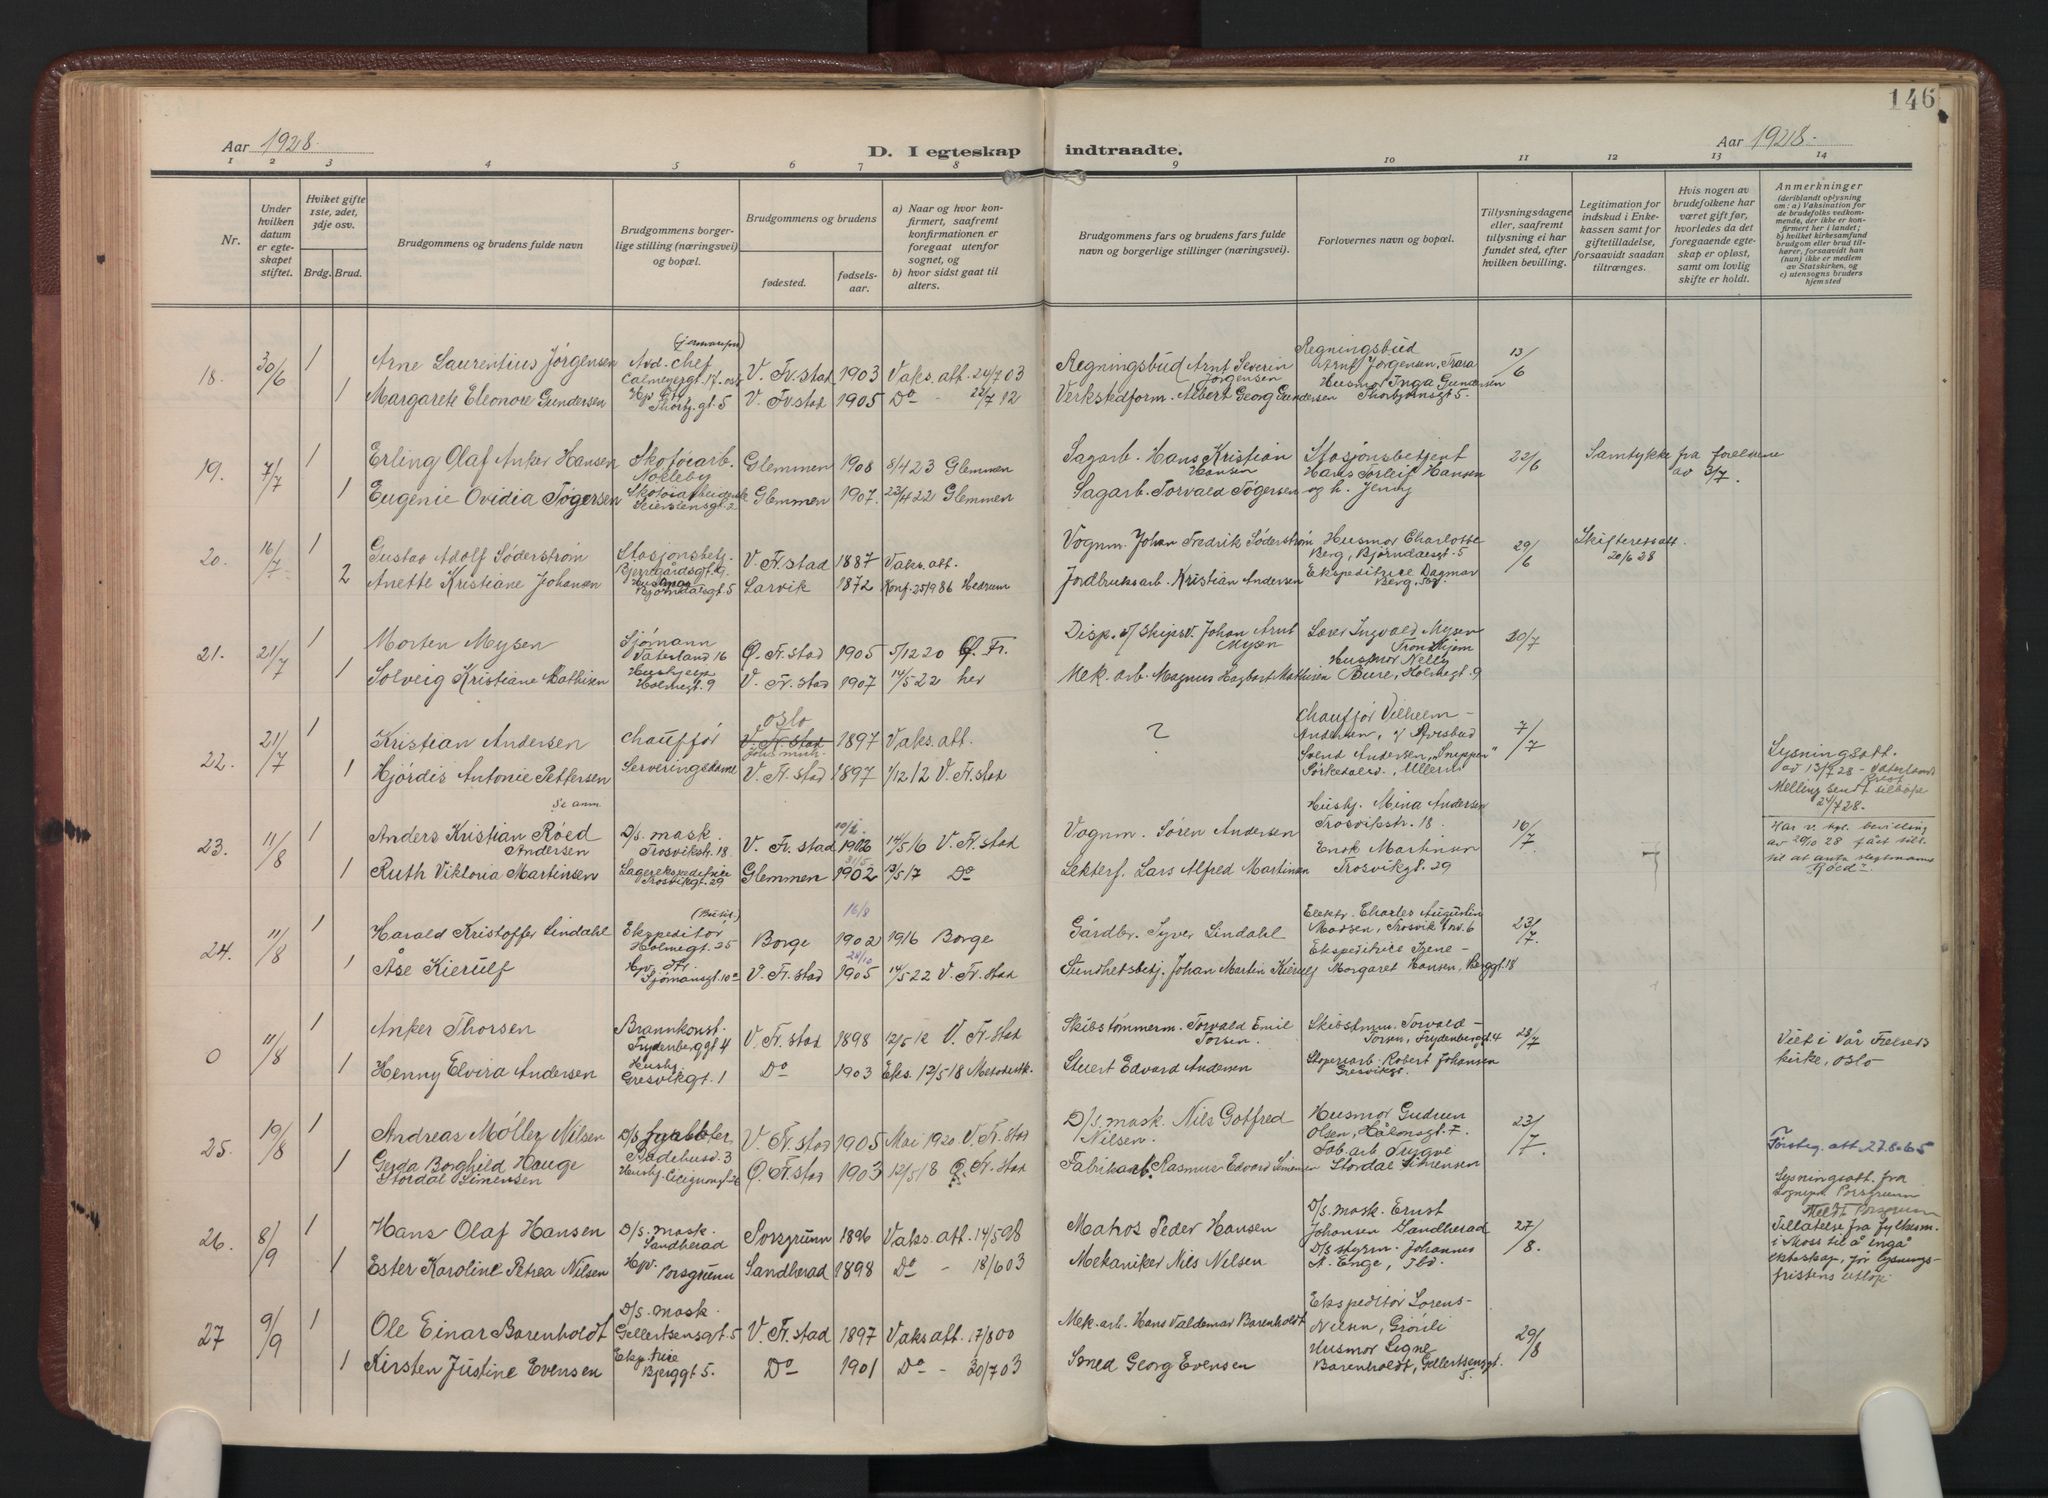 146
Aar 1928.
D. I egteskap indtraadte.
Aar 1928.
1 2 3 4 5 6 7 8 9 10 11 12 13 14
Nr.
Under hvilken datum er egteskapet stiftet.
Hviket gifte 1ste, 2det, 3dje osv.
Brdg. Brud.
Brudgommens og brudens fulde navn
Brudgommens borgerlige stilling (næringsvei) og bopæl.
Brudgommens og brudens
fødested.
fødselsaar.
a) Naar og hvor konfirmert, saafremt konfirmationen er foregaat utenfor sognet, og
b) hvor sidst gaat til alters.
Brudgommens fars og brudens fars fulde navn og borgerlige stillinger (næringsvei).
Forlovernes navn og bopæl.
Tillysningsdagene eller, saafremt tillysning ei har fundet sted, efter hvilken bevilling.
Legitimation for indskud i Enkekassen samt for giftetilladelse, forsaavidt saadan tiltrænges.
Hvis nogen av brudefolkene har været gift før, hvorledes da det foregaaende egteskap er opløst, samt om lovlig skifte er holdt.
Anmerkninger (deriblandt oplysning om: a) Vaksination for de brudefolks vedkommende, der ikke er konfirmert her i landet; b) hvilket kirkesamfund brudgom eller brud tilhører, forsaavidt han (hun) ikke er medlem av Statskirken, og c) utensogns bruders hjemsted
18. 30/6 1 Arne Laurentius Jørgensen Avd. chef Calmeyergt. 17. V. Fr. stad 1903 Vaks. att. 24/7 03 Regningsbud Arnt Severin Jørgensen Regningsbud Arnt Jørgensen, Trara 13/6
1 Margarete Eleonore Gundersen Thorbj. gt. 5 V. Fr. stad 1905 Do - 22/7 12 Verkstedform. Albert Georg Gundersen Husmor Inga Gundersen Thorbjørnsgt 5.
19. 7/7 1 Erling Olaf Anker Hansen Skotøiarb. Nøkleby Glemmen 1908 8/4 23 Glemmen Sagarb. Hans Kristian Hansen Stasjonsbetjent Hans Torleif Hansen 22/6 Samtykke fra foreldrene av 3/7.
1 Eugenie Ovidia Tøgersen Glemmen 1907. 23/4 22 Glemmen Sagarb. Torvald Tøgersen og h. Jenny
20. 16/7 1 Gustav Adolf Söderstrøm Stasjonsbetj. Bjerregårdsgt. 19. V. Fr. stad 1887 Vaks. att. Vognm. Johan Fredrik Söderstrøm Husmor Charlotte Berg, Bjørndalsgt. 5 29/6 Skifteressatt. 20/6 28
2 Anette Kristiane Johansen Bjørndalsgt. 5 Larvik 1872 Konf. 25/9 86 Hedrum Jordbruksarb. Kristian Andersen Ekspeditrice Dagmar Berg,
21. 21/7 1 Morten Mysen Sjømann Vaterland 16 Ø. Fr. stad 1905 5/12 20 Ø. Fr. Disp. of skipsv. Johan Arnt Mysen Lærer Ingvald Mysen Trondhjem 20/7
1 Solveig Kristiane Mathisen Holmegt. 9 V. Fr. stad 1907 14/5 22 her Mek. arb. Magnus Hagbart Mathisen Husmor Nelly Bure, Holmegt. 9
22. 21/7 1 Kristian Andersen chauffør Oslo V. Fr. stad 1897 Vaks. att. ? Chaufför Vilhelm Andersen, 7/7
1 Hjördis Antonie Pettersen Serveringsdame V. Fr. stad 1897 1/12 12 V. Fr. stad Svend Andersen, "Sneppen" Sørkedalsv., Ullern Lysningsatt. av 13/7 28 - Melling sendt tilbake 24/7 28.
23. 11/8 1 Anders Kristian Røed Andersen Se anm. D/s. mask. Trosvikstr. 18 V. Fr. stad 1902 14/5 16 V. Fr. stad Vognm. Søren Andersen Hushj. Mina Andersen Trosvikstr. 18 10/7 Har v. kgl. bevilling av 29/10 28 fått till. til at anta slegtsnavn "Røed"
1 Ruth Viktoria Martinsen Lagerekspeditrice Trosvikgt. 29 Glemmen 31/5 1902 13/5 17 Do Lekterf. Lars Alfred Martinsen Trosvikgt. 29
24. 11/8 1 Harald Kristoffer Lindahl Ekspeditør Holmegt. 25 Borge 16/8 1902 1916 Borge Gårdbr. Syver Lindahl Elektr. Charles Augustin Madsen, Trosvik 23/7.
1 Åse Kierulf Sjømansgt. 10a V. Fr. stad 1905 14/5 22 V. Fr. stad Sundhetsbetj. Johan Martin Kierulf Ekspeditrice Irene - Margaret Hansen, Berggt. 18
0 11/8 1 Anker Thorsen Brannkonst. Frydenberggt 4 V. Fr. stad 1898 12/5 12 V. Fr. stad Skibstömmerm. Torvald Emil Torsen. Skibstmm. Torvald - Torsen, Frydenberggt. 4 28/7 Viet i Vår Frelsers kirke, Oslo
1 Henny Elvira Andersen Hushj. Gresvikgt. 1 Do 1903 Eks. 12/5 18 Metodistk. Stuert Edvard Andersen Støperiarb. Robert Johansen Gresvikgt.
25. 19/8 1 Andreas Möller Nilsen D/s. V. Fr. stad 1905 Mai 1920 V. Fr. stad D/s. mask. Nils Gotfred Nilsen. Husmor Gudrun Olsen, Håkonsgt. 7. 23/7. Førsteg. att 27.8.65
1 Gerda Borghild Hauge Stordal Simensen Hushj. Ø. Fr. stad 1903 12/5 18 Ø. Fr. stad Fabrikarb. Rasmus Edvard Simensen Fab. arb Trygve Stordal Simensen
26. 8/9 1 Hans Olaf Hansen D/s. mask. Sandherad Porsgrunn 1896 Vaks. att. 14/5 98 Matros Peder Hansen D/s. mask. Ernst Johansen Sandherad 27/8. Lysningsatt. fra sognepr. Porsgrunn
1 Ester Karoline Petrea Nilsen Hpv. Porsgrunn Sandherad 1898 Do - 18/6 03 Mekaniker Nils Nelsen D/s styrm. Johannes A. Enge, Tillatelse fra fylkesm. i Moss til å ingå ekteskap, før lysningsfristens utløp
27 9/9 1 Ole Einar Barenholdt D/s. mask. Gellertsensgt 5 V. Fr. stad 1897 Vaks att. 17/8 00 Mek. arb. Hans Valdemar Barenholdt Ekspeditör Lorens - Nilsen, Grönli 29/8
1 Kirsten Justine Evensen Bjerggt 5. Do 1901 Do - 30/7 03 Smed Georg Evensen Husmor Signe Barenholdt, Gellertsensgt. 5